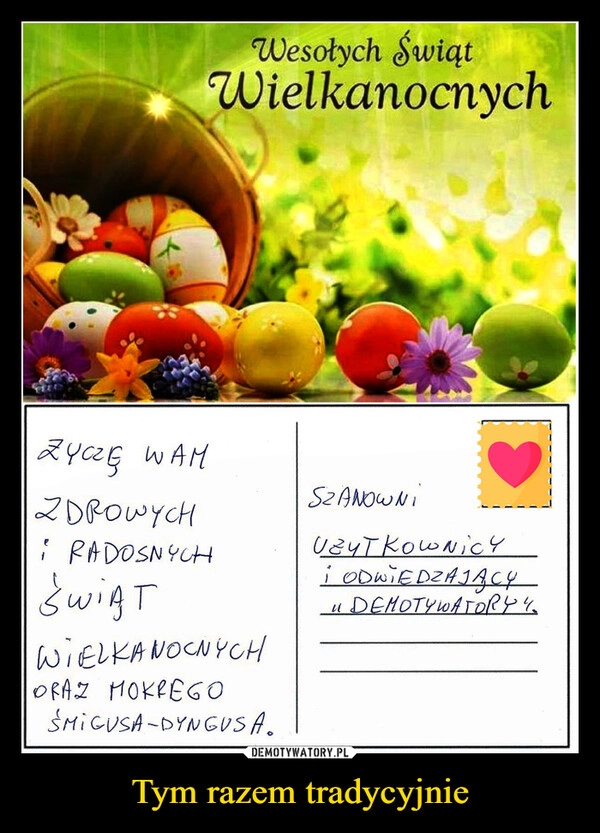 Wesołych Świąt
Wielkanocnych
ŻYCZĘ WAM
ZDROWYCH
i RADOSNYCH
ŚWIĄT
WIELKANOCNYCH
ORAZ MOKREGO
ŚMIGUSA-DYNGUSA.
SZANOWNI
UŻYTKOWNICY
i ODWIEDZAJĄCY
"DEMOTYWATORY".
DEMOTYWATORY.PL
Tym razem tradycyjnie